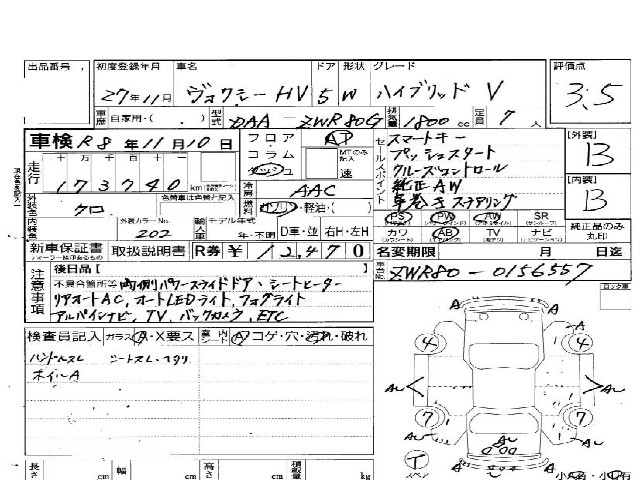 出品番号
初度登録年月 車名 ドア 形状 グレード 評価点
27年11月 ヴォクシーHV 5 W ハイブリッド V 3.5
車歴 自家用・( ) 型式 DAA-ZWR80G 排気量 1800 cc 定員 7 人
車検 R8年11月10日 フロア・コラム・ダッシュ AT MTのみ記入 速
セールスポイント
スマートキー
プッシュスタート
クルーズコントロール
純正AW
革巻きステアリング
[外装] B
[内装] B
走行 十万 万 千 百 十 一
173740 km
冷房 AAC
燃料 ガソリン・軽油・( )
外装色 クロ 色替車は色替え記入
外装カラーNo. 202
輸入車 モデル年式 年・不明 D車・並 右H・左H
PS PW AW SR
カワ AB TV ナビ
純正品のみ丸印
新車保証書 取扱説明書 R券 ¥12,470
名変期限 月 日迄
車台No. ZWR80-0156557
注意事項
後日品[ ]
不具合箇所等 両側パワースライドドア・シートヒーター
リアオートAC, オートLEDライト, フォグライト
アルパインナビ, TV, バックカメラ, ETC
検査員記入 ガラス A・X要ス 内 コゲ・穴・汚れ・破れ
ハンドルスレ シートスレ・ヘタリ
ホイールA
ロック車
A A
4 4
A AU AU
7 7
AU A
AU
A
T
スペア
長さ cm 幅 cm 高さ cm 積載量 kg